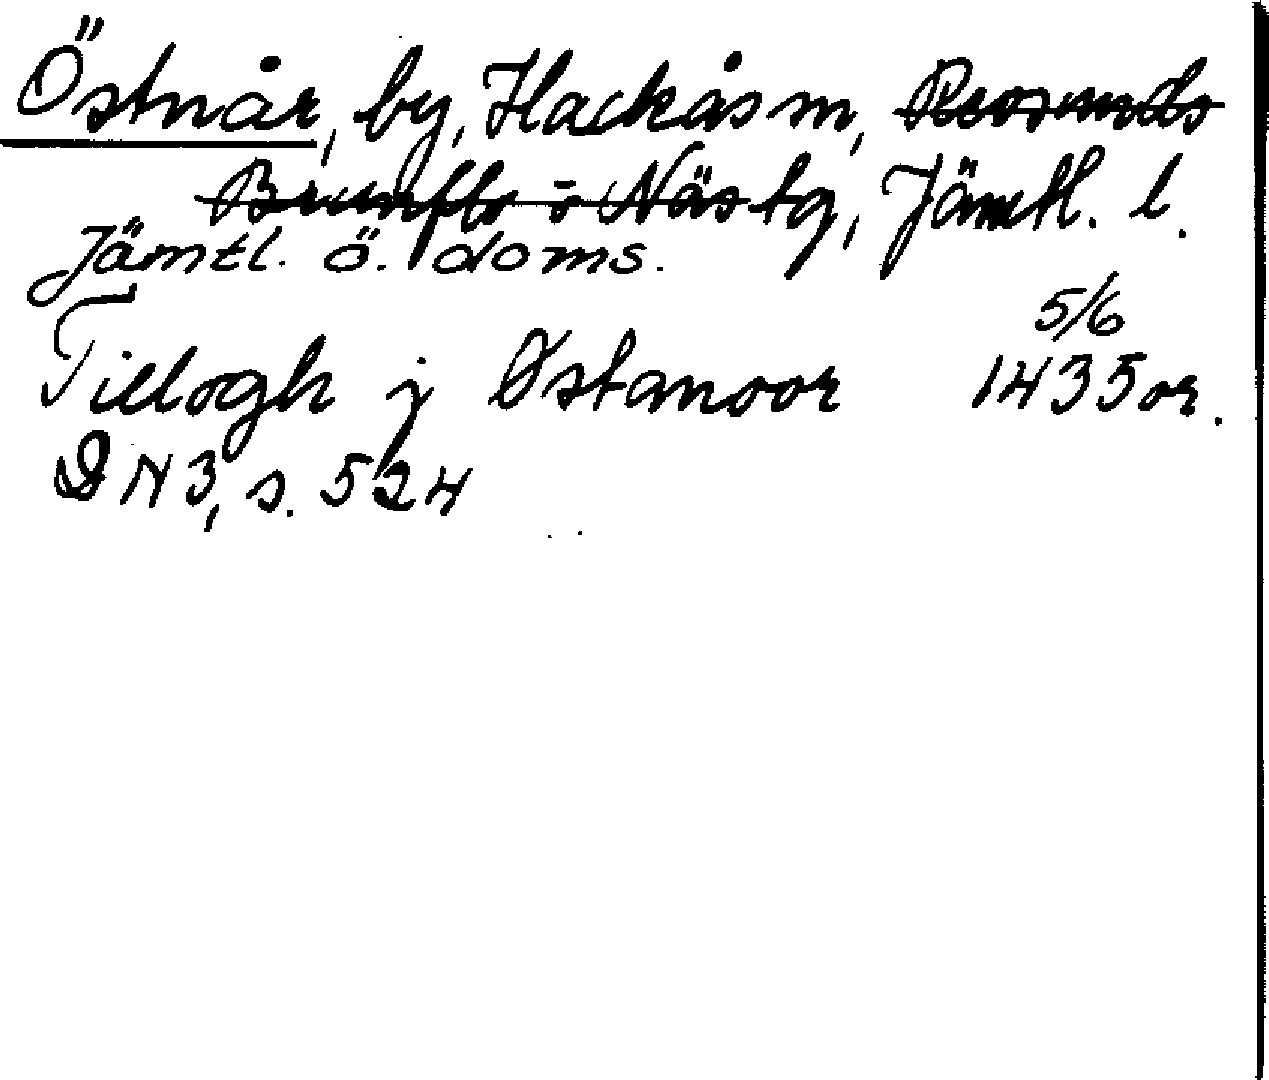 Östnår, by, Hackås sn, Revsunds
Brunflo o Näs tg, Jämtl. l.
Jämtl. ö. doms.
5/6
Tillogh j Østanoor 1435 or.
DN 3, s. 524